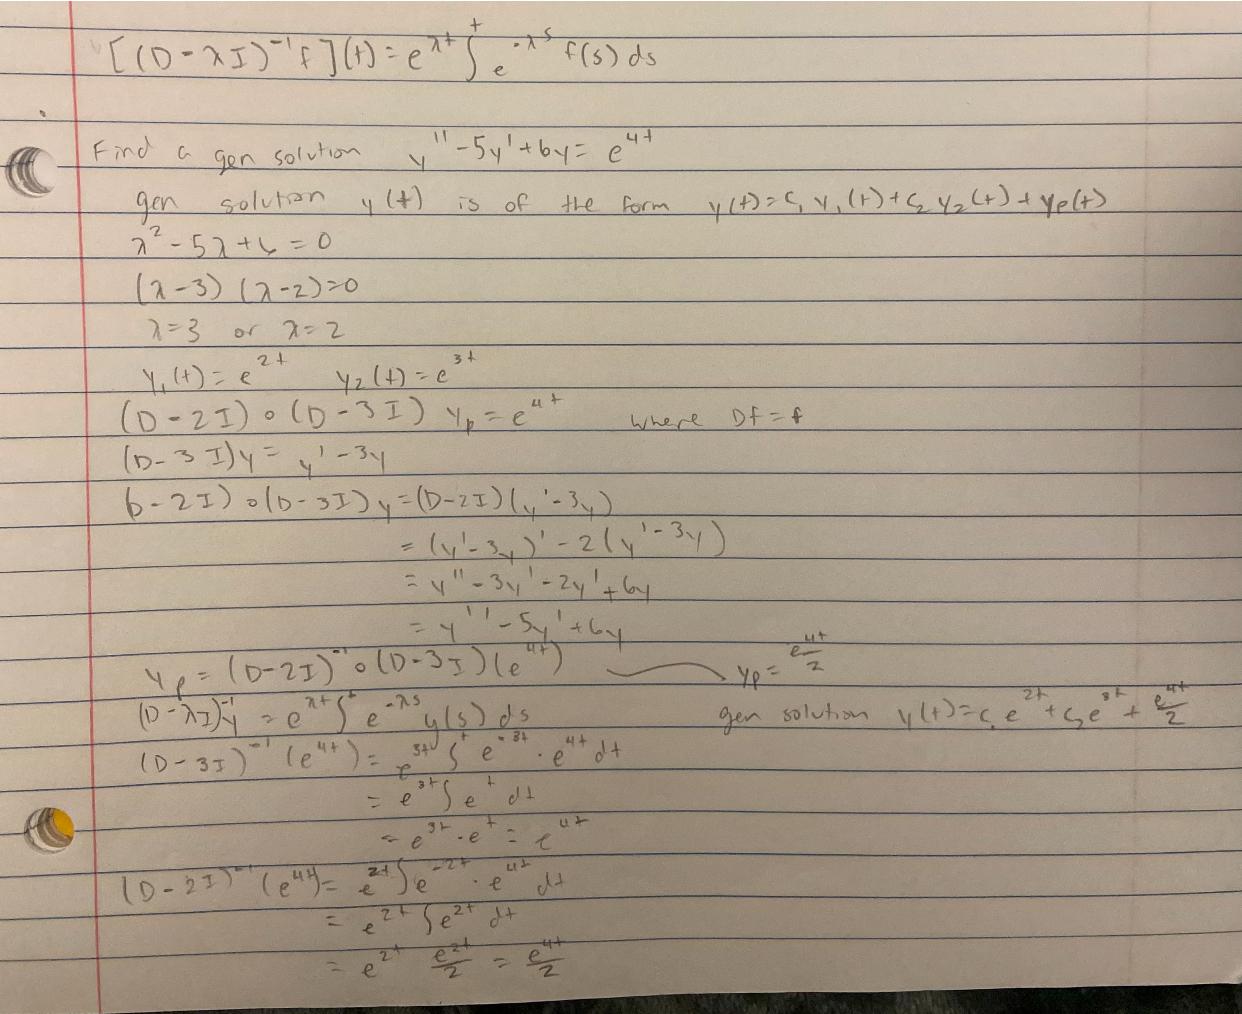 [(D-λI)⁻¹f](t) = e^{λt} ∫^t e^{-λs} f(s) ds
Find a gen solution y'' - 5y' + 6y = e^{4t}
gen solution y(t) is of the form y(t) = c₁ y₁(t) + c₂ y₂(t) + yp(t)
λ² - 5λ + 6 = 0
(λ-3) (λ-2) = 0
λ=3 or λ=2
y₁(t) = e^{2t} y₂(t) = e^{3t}
(D-2I) ∘ (D-3I) yp = e^{4t} where Df = f
(D-3I)y = y' - 3y
(D-2I) ∘ (D-3I)y = (D-2I)(y'-3y)
= (y'-3y)' - 2(y'-3y)
= y'' - 3y' - 2y' + 6y
= y'' - 5y' + 6y
yp = (D-2I)⁻¹ ∘ (D-3I)(e^{4t}) yp = e^{4t}/2
(D-λI)⁻¹y = e^{λt} ∫^t e^{-λs} y(s) ds gen solution y(t) = c₁e^{2t} + c₂e^{3t} + e^{4t}/2
(D-3I)⁻¹ (e^{4t}) = e^{3t} ∫^t e^{-3t} · e^{4t} dt
= e^{3t} ∫ e^t dt
= e^{3t} · e^t = e^{4t}
(D-2I)⁻¹ (e^{4t}) = e^{2t} ∫ e^{-2t} · e^{4t} dt
= e^{2t} ∫ e^{2t} dt
= e^{2t} e^{2t}/2 = e^{4t}/2